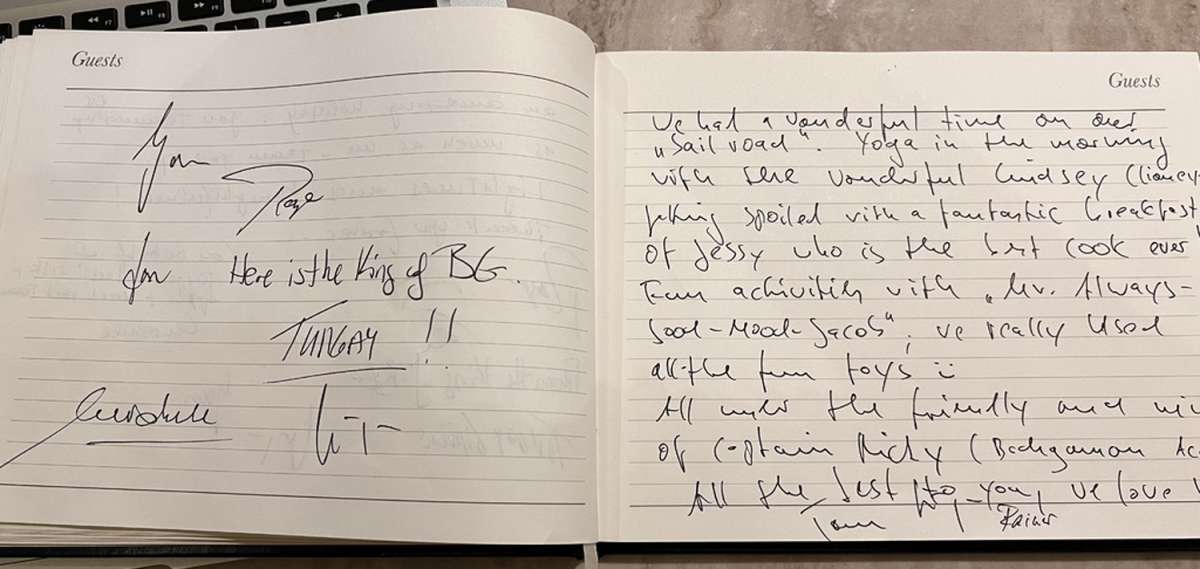 Guests
Here is the King of BG.
TUNGAY !!
Guests
We had a wonderful time on our
„Sail road“. Yoga in the morning
with the wonderful Lindsey (
spoiled with a fantastic breakfast
of Jessy who is the best cook ever
Team activities with „Mr. Always-
Good-Mood-Jacob“, we really used
all the fun toys
All under the friendly and
of Captain Ricky (Backgamon
All the best to you, we love
Rainer